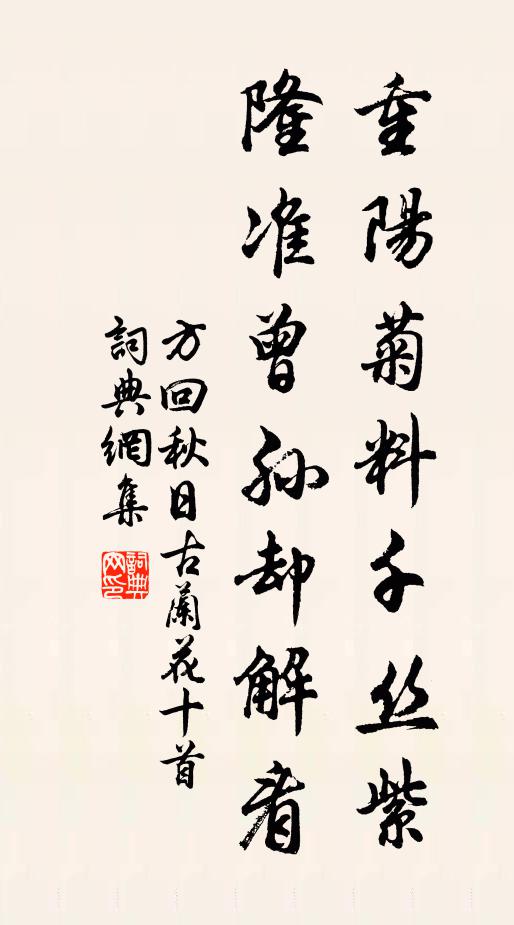 重陽菊料千丝紫
隆准曾孙却解看
方回秋日古蘭花十首
詞典網集
詞典
网印